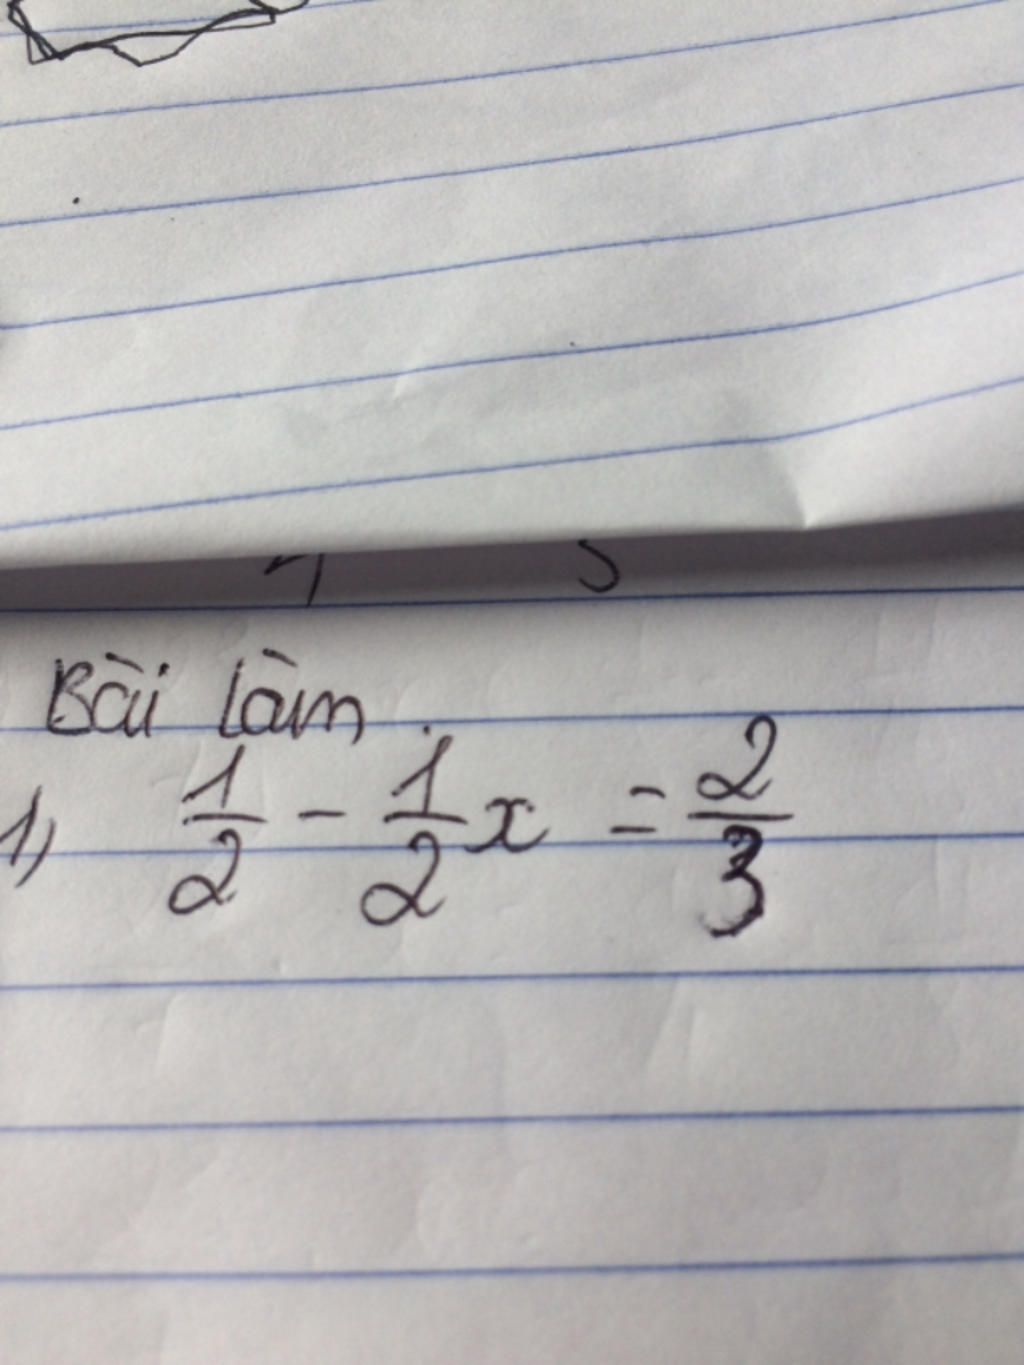 Bài làm.
1) 1/2 - 1/2 x = 2/3